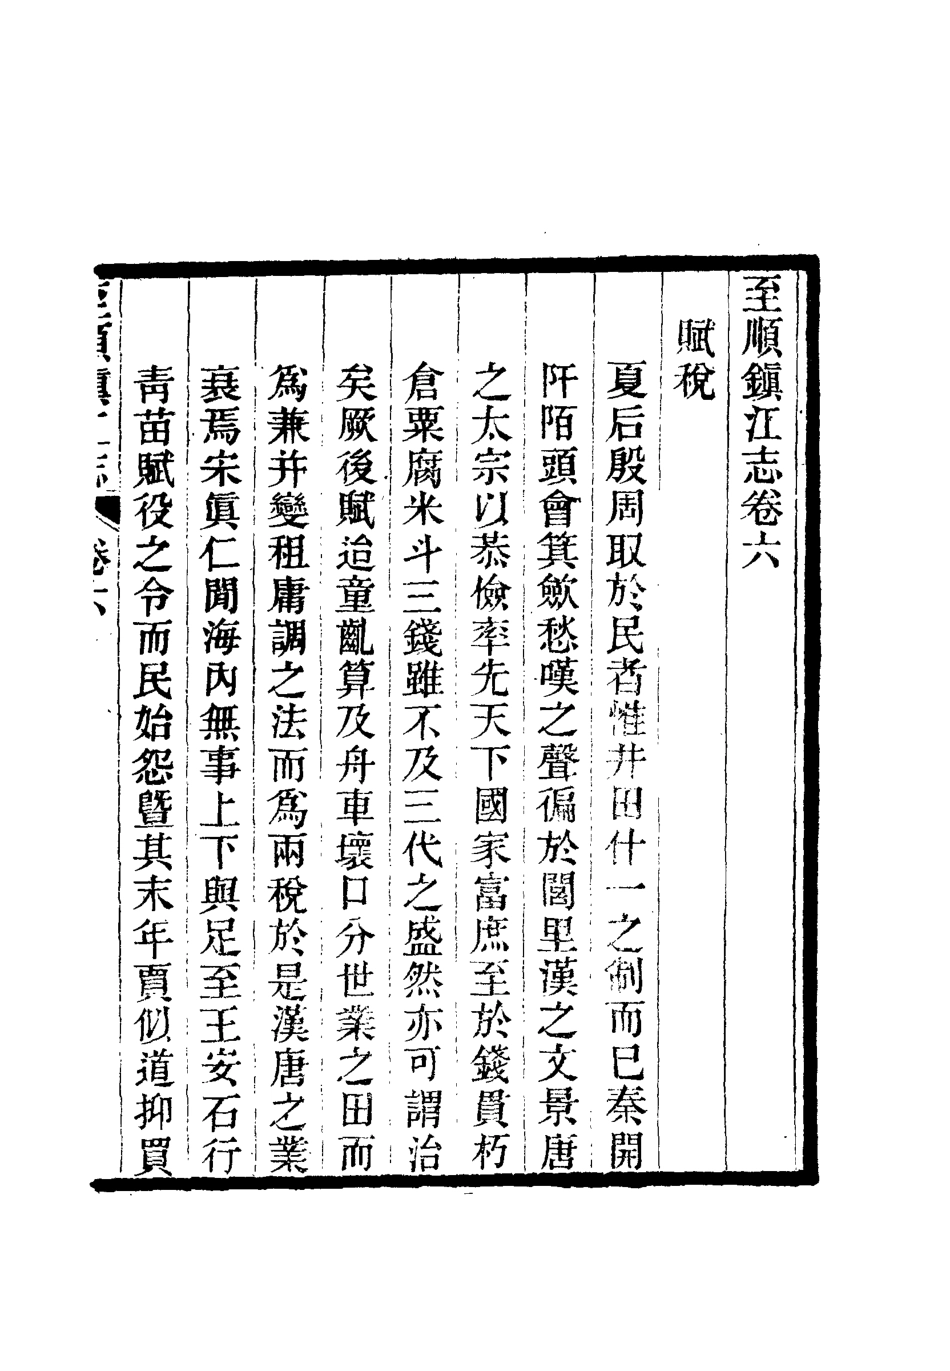 至順鎮江志卷六
賦稅
夏后殷周取於民者惟井田什一之制而已秦開
阡陌頭會箕歛愁嘆之聲徧於閭里漢之文景唐
之太宗以恭儉率先天下國家富庶至於錢貫朽
倉粟腐米斗三錢雖不及三代之盛然亦可謂治
矣厥後賦迨童齓算及舟車壞口分世業之田而
爲兼并變租庸調之法而爲兩稅於是漢唐之業
衰焉宋眞仁閒海內無事上下與足至王安石行
靑苗賦役之令而民始怨曁其末年賈似道抑買
至順鎮江志 卷六